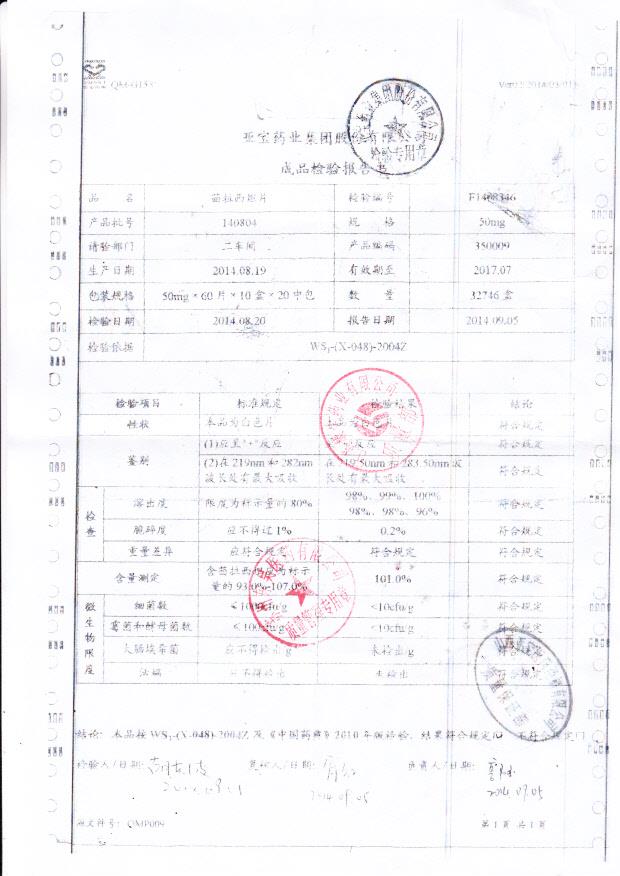 QM-G133
亚宝药业集团股份有限公司
成品检验报告书
品 名 茴拉西坦片 检验编号 F1408346
产品批号 140804 规 格 50mg
请验部门 二车间 产品编码 350009
生产日期 2014.08.19 有效期至 2017.07
包装规格 50mg×60片×10盒×20中包 数 量 32746盒
检验日期 2014.08.20 报告日期 2014.09.05
检验依据 WS₁-(X-048)-2004Z
检验项目 标准规定 检验结果 结论
性状 本品为白色片 符合规定
鉴别 (1)应呈"+"反应 反应 符合规定
(2)在219nm和282nm波长处有最大吸收 283.50nm波长处有最大吸收 符合规定
检查 溶出度 限度为标示量的80% 98%、99%、100% 98%、98%、96% 符合规定
脆碎度 应不得过1% 0.2% 符合规定
重量差异 应符合规定 符合规定 符合规定
含量测定 含茴拉西坦应为标示量的93.0%-107.0% 101.0% 符合规定
微生物限度 细菌数 ≤1000cfu/g <10cfu/g 符合规定
霉菌和酵母菌数 ≤100cfu/g <10cfu/g 符合规定
大肠埃希菌 应不得检出/g 未检出/g 符合规定
活螨 应不得检出 未检出 符合规定
结论: 本品按WS₁-(X-048)-2004Z及《中国药典》2010年版检验,结果符合规定 不符合规定
检验人/日期: 复核人/日期: 负责人/日期:
2014.09.05 2014.09.05
QMP009 第1页 共1页
检验专用章
质量管理专用章